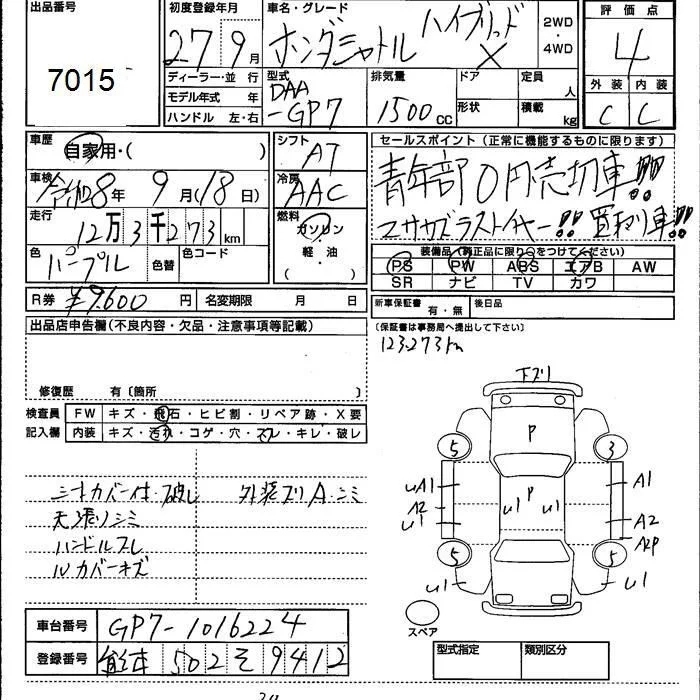 出品番号
7015
初度登録年月
27年9月
車名・グレード
ホンダシャトル ハイブリッド X
2WD・4WD
評価点
4
外装 内装
C C
ディーラー・並 行
モデル年式 年
ハンドル 左・右
型式
DAA-GP7
排気量
1500cc
ドア
形状
定員 人
積載 kg
車歴
自家用・( )
車検
令和8年 9月(18日)
走行
12万3千273km
色
パープル
色替
色コード
シフト
AT
冷房
AAC
燃料
ガソリン
軽油
( )
セールスポイント(正常に機能するものに限ります)
青年部0円売切車!!!
マサカズラストイヤー!!買取り車!!
装備品(純正品に限り○をつけてください)
PS PW ABS エアB AW
SR ナビ TV カワ
R券 ¥9,600円
名変期限 月 日
新車保証書 有・無
後日品
(保証書は事務局へ提出して下さい)
123,273km
出品店申告欄(不良内容・欠品・注意事項等記載)
修復歴 有〔箇所 〕
検査員記入欄
FW キズ・飛石・ヒビ割・リペア跡・X要
内装 キズ・汚れ・コゲ・穴・スレ・キレ・破レ
シートカバー付・破レ
天張りシミ
ハンドルスレ
ルカバーキズ
外装ズリA・シミ
下ズリ
P
5 3
UA1 A1
P
A2 U1 U1 U1 A2
A2P
5 5
U1 U1
スペア
車台番号 GP7-1016224
登録番号 熊本502そ9412
型式指定 類別区分